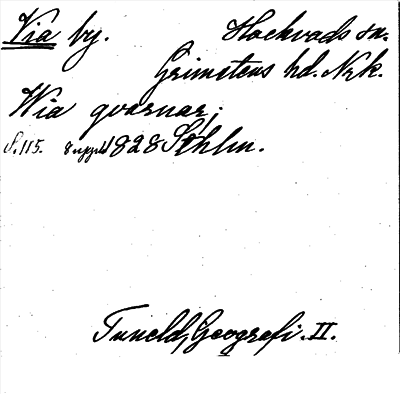 Via by. Hackvads sn.
Grimstens hd. Nrk.
Wia qvarnar;
S. 115. 8 uppl. 1828 Sthlm.
Tuneld, Geografi. II.